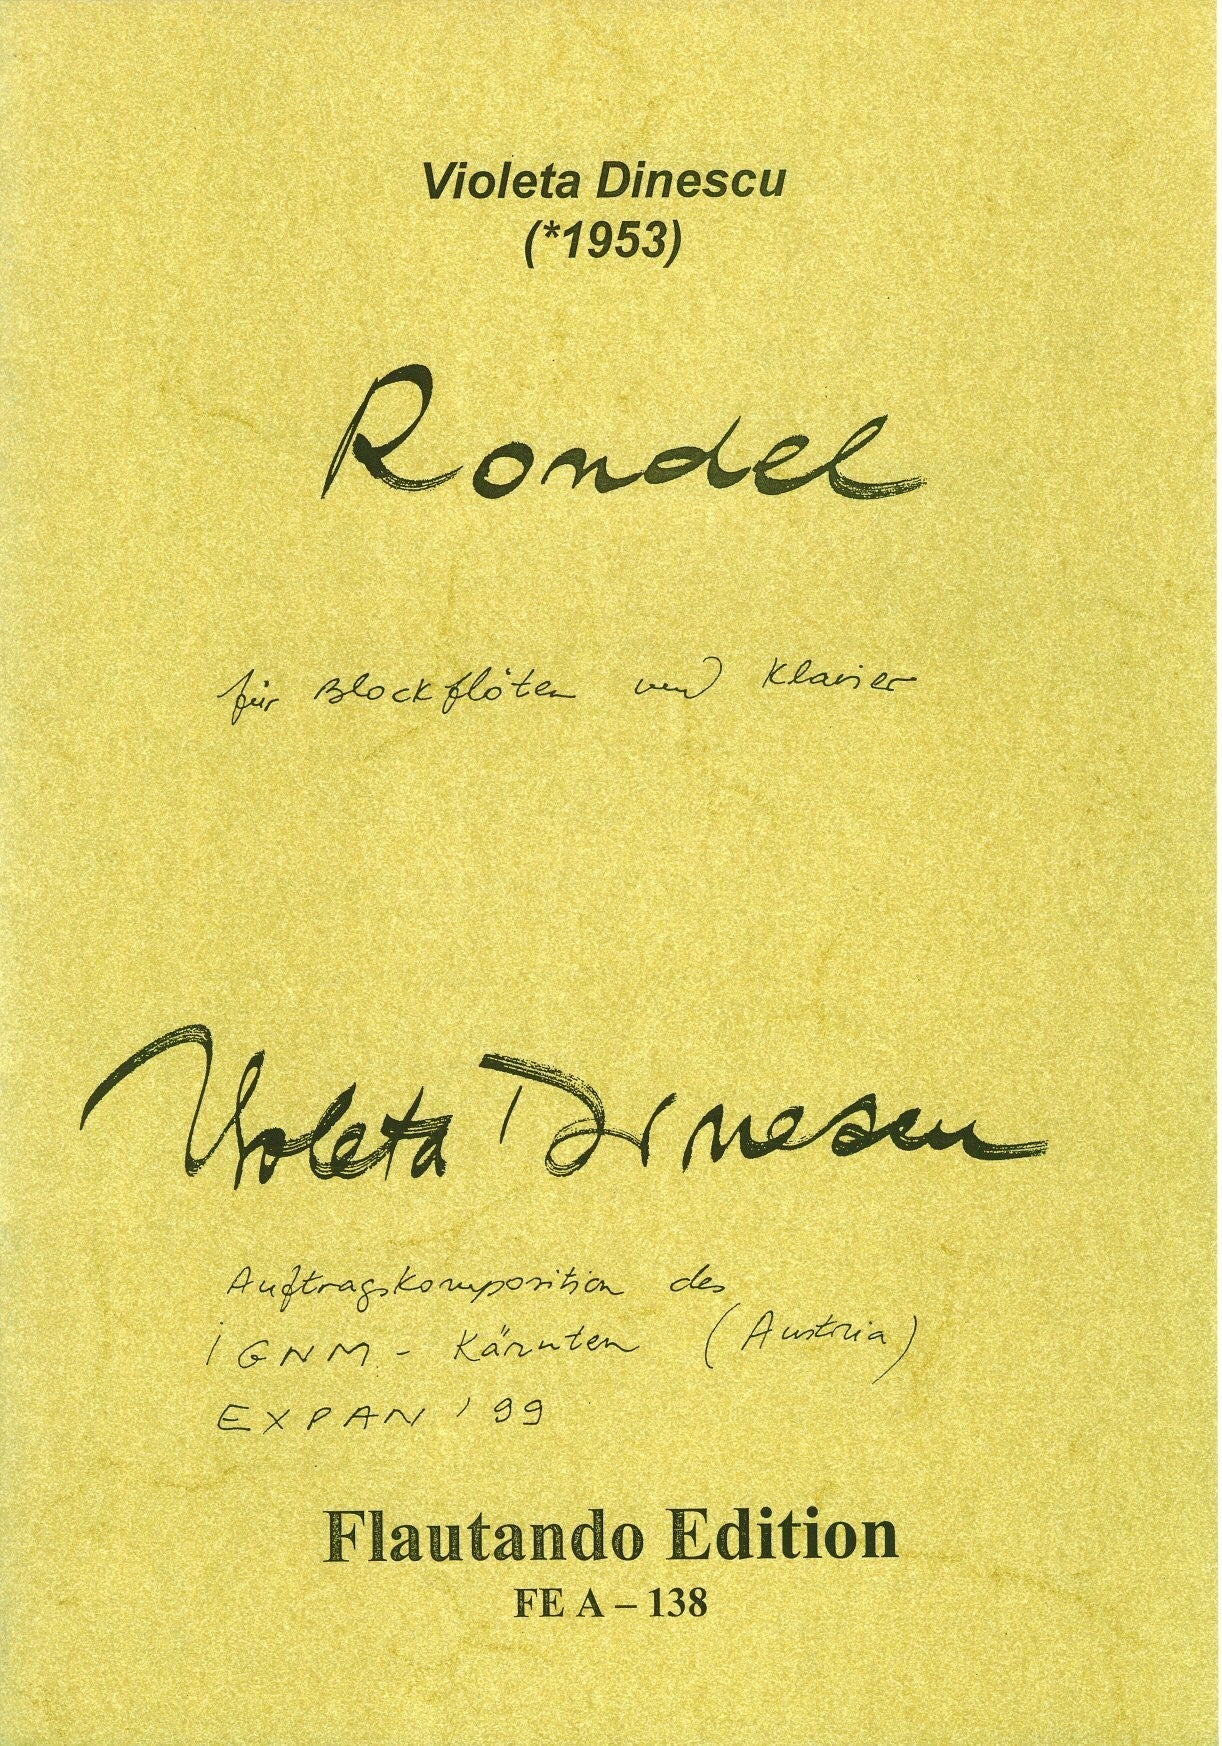 Violeta Dinescu
(*1953)
Rondel
für Blockflöten und Klavier
Violeta Dinescu
Auftragskomposition des
IGNM - Kärnten (Austria)
EXPAN '99
Flautando Edition
FE A – 138